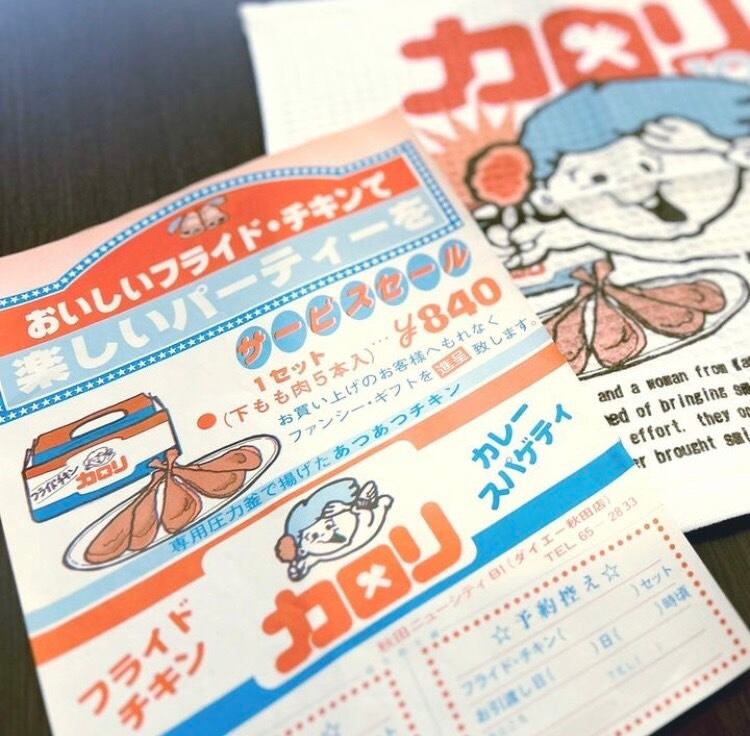 おいしいフライド・チキンで
楽しいパーティーを
サービスセール
1セット
(下もも肉5本入)… ¥840
お買い上げのお客様へもれなく
ファンシー・ギフトを進呈致します。
フライドチキン
カロリ
専用圧力釜で揚げたあつあつチキン
カレー
スパゲティ
カロリ
フライド
チキン
秋田ニューシティB1(ダイエー秋田店)
TEL 65-2833
☆予約控え☆
フライド・チキン( )セット
お引渡し日( )日( )時頃
カロリ
カロリ
and a woman from
of bringing
effort. they
brought